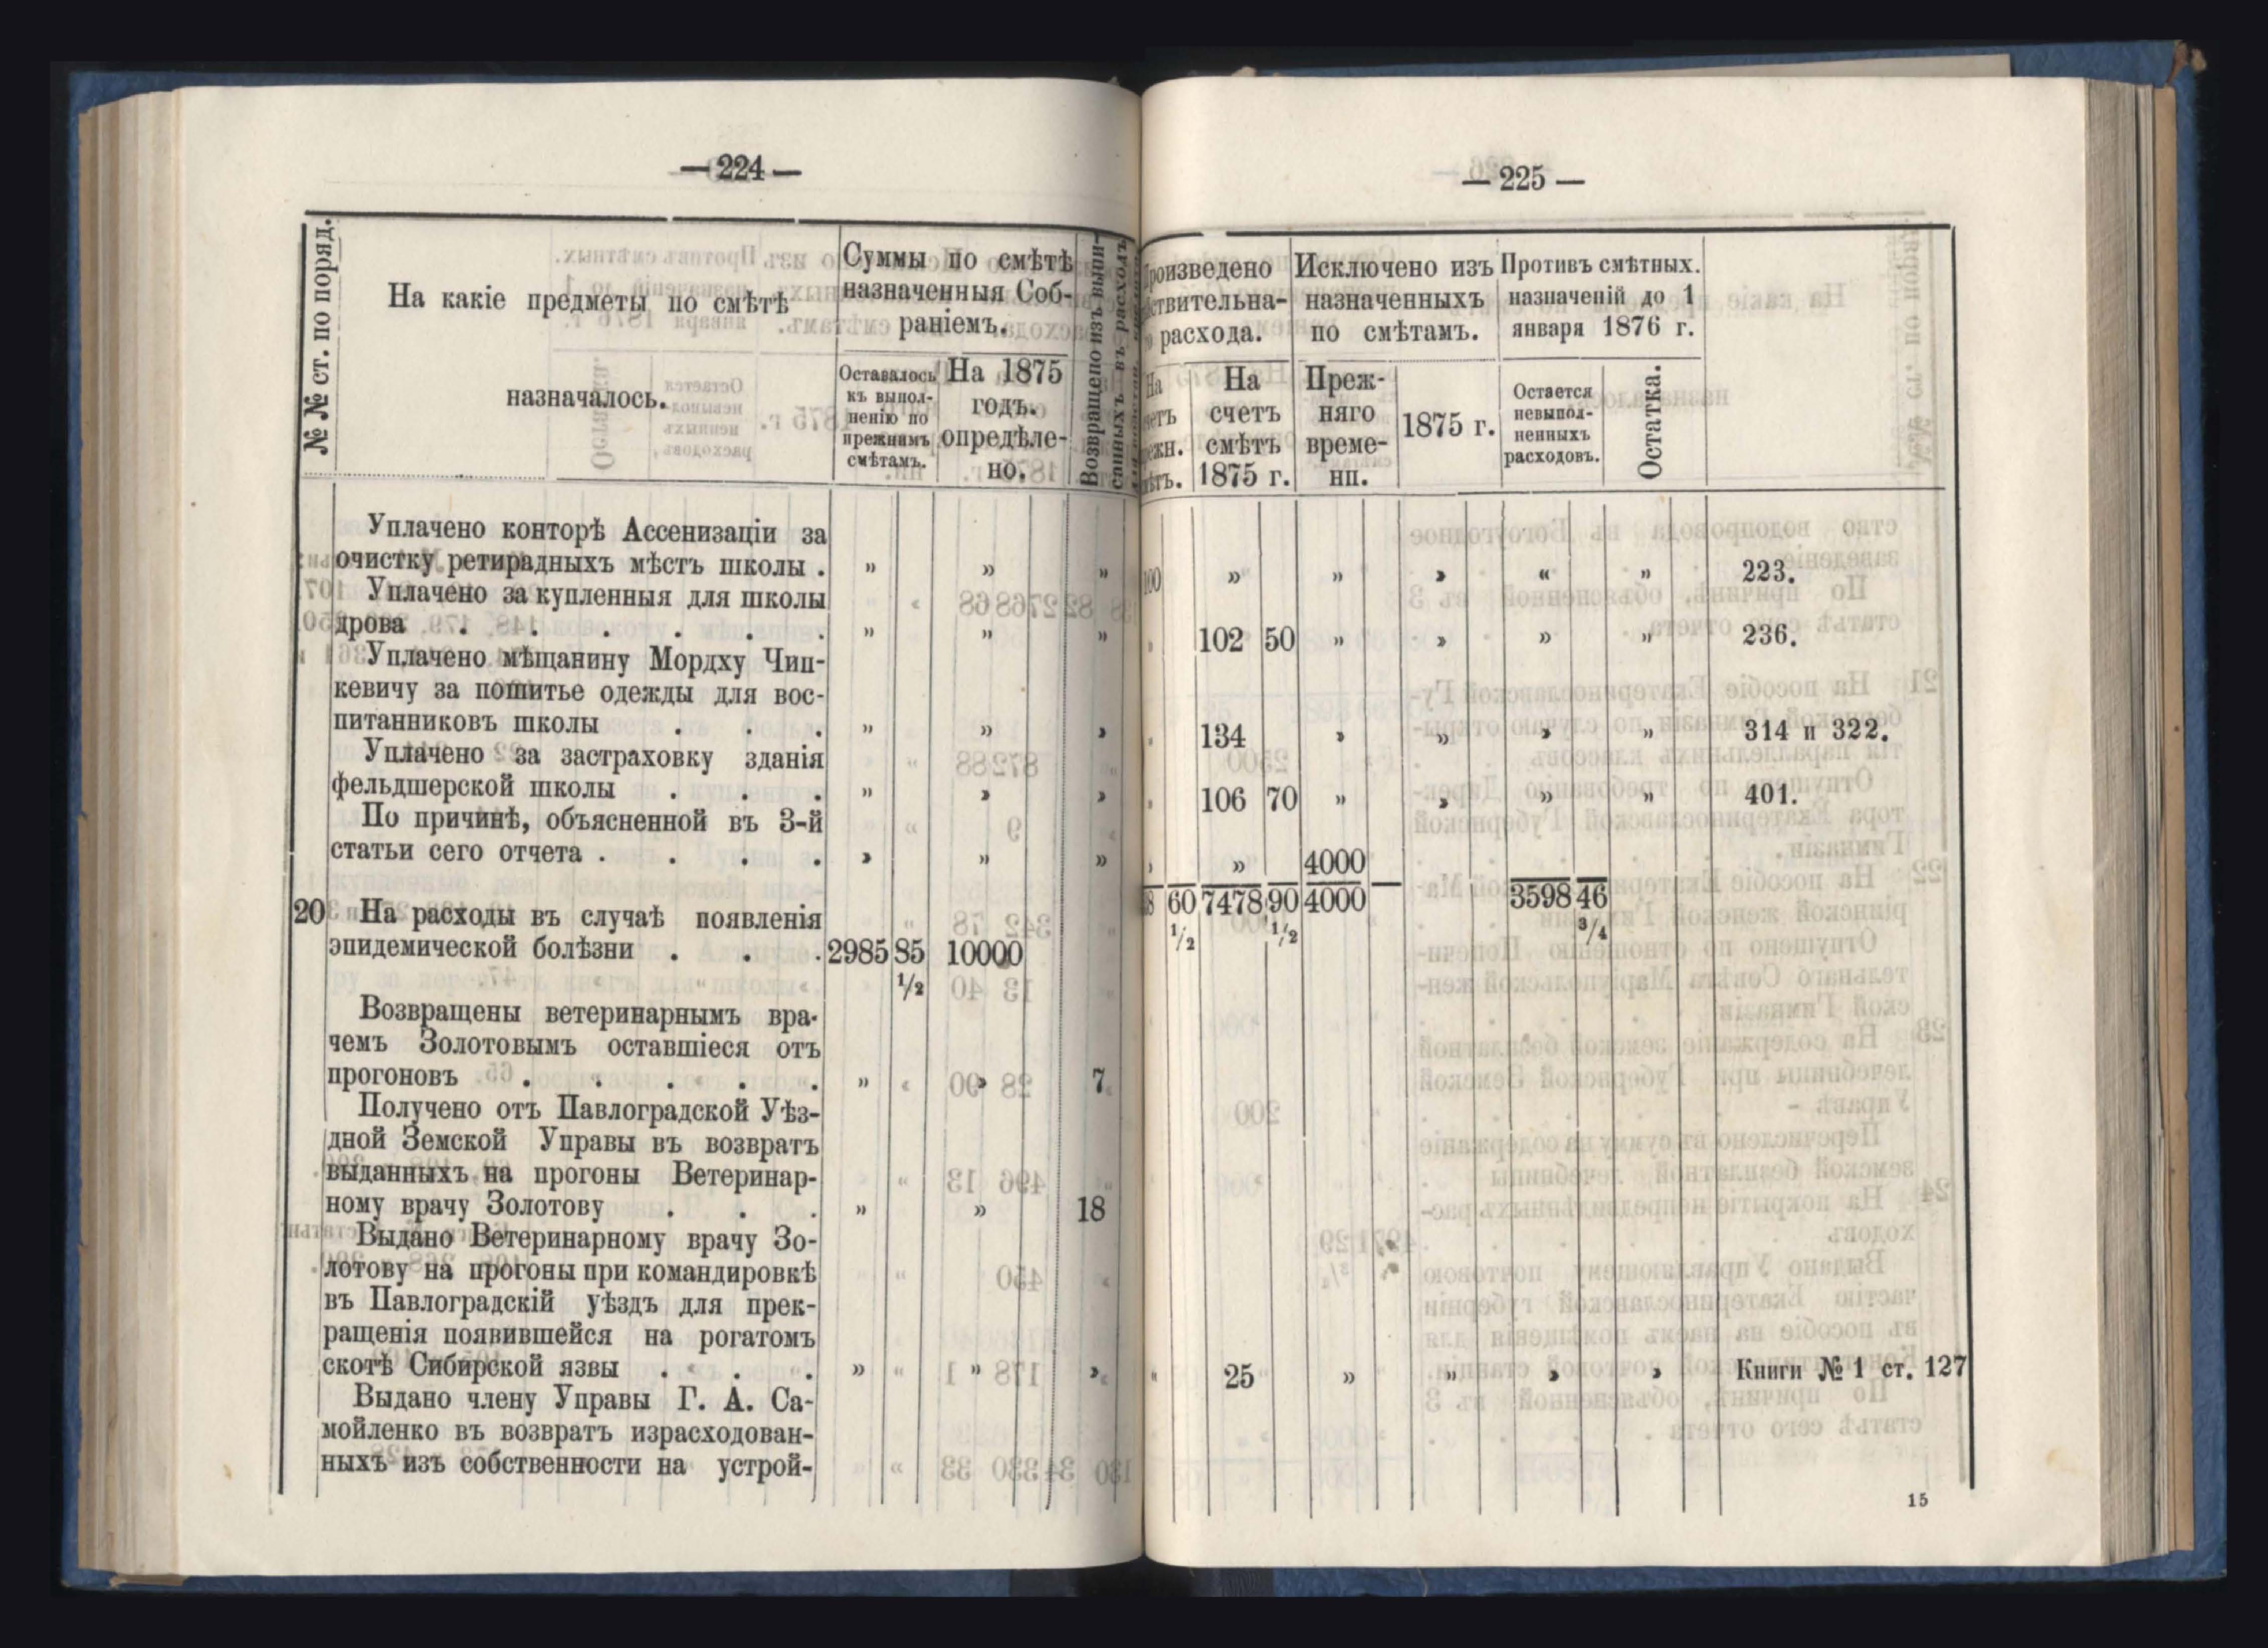 — 224 —
№№ ст. по поряд.
На какіе предметы по смѣтѣ
назначалось.
Суммы по смѣтѣ
назначенныя Соб-
раніемъ.
Оставалось
къ выпол-
ненію по
прежнимъ
смѣтамъ.
На 1875
годъ.
опредѣле-
но.
Возвращено изъ выпи-
санныхъ въ расходъ
Уплачено конторѣ Ассенизаціи за
очистку ретирадныхъ мѣстъ школы . » » »
Уплачено за купленныя для школы
дрова . . . . . . » » »
Уплачено мѣщанину Мордху Чип-
кевичу за пошитье одежды для вос-
питанниковъ школы . . . » » »
Уплачено за застраховку зданія
фельдшерской школы . . . » » »
По причинѣ, объясненной въ 3-й
статьи сего отчета . . . . » » »
20 На расходы въ случаѣ появленія
эпидемической болѣзни . . . 2985 85 10000
1/2
Возвращены ветеринарнымъ вра-
чемъ Золотовымъ оставшіеся отъ
прогоновъ . . . . . » » 7
Получено отъ Павлоградской Уѣз-
дной Земской Управы въ возвратъ
выданныхъ на прогоны Ветеринар-
ному врачу Золотову . . . » » 18
Выдано Ветеринарному врачу Зо-
лотову на прогоны при командировкѣ
въ Павлоградскій уѣздъ для прек-
ращенія появившейся на рогатомъ
скотѣ Сибирской язвы . . . » » »
Выдано члену Управы Г. А. Са-
мойленко въ возвратъ израсходован-
ныхъ изъ собственности на устрой-
— 225 —
расхода.
На
счетъ
смѣтъ
1875 г.
Исключено изъ
назначенныхъ
по смѣтамъ.
Преж-
няго
време-
нп.
1875 г.
Противъ смѣтных.
назначеній до 1
января 1876 г.
Остается
невыпол-
ненныхъ
расходовъ.
Остатка.
» » » « » 223.
102 50 » » » » 236.
134 » » » » 314 и 322.
106 70 » » » » 401.
» 4000
60 7478 90 4000 — 3598 46
1/2 1/2 3/4
25 » » » » Книги № 1 ст. 127
15